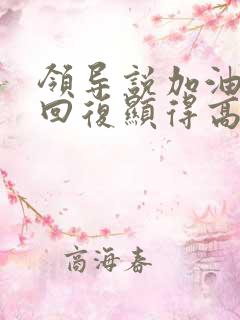 領导説加油
回復顯得高
商海春